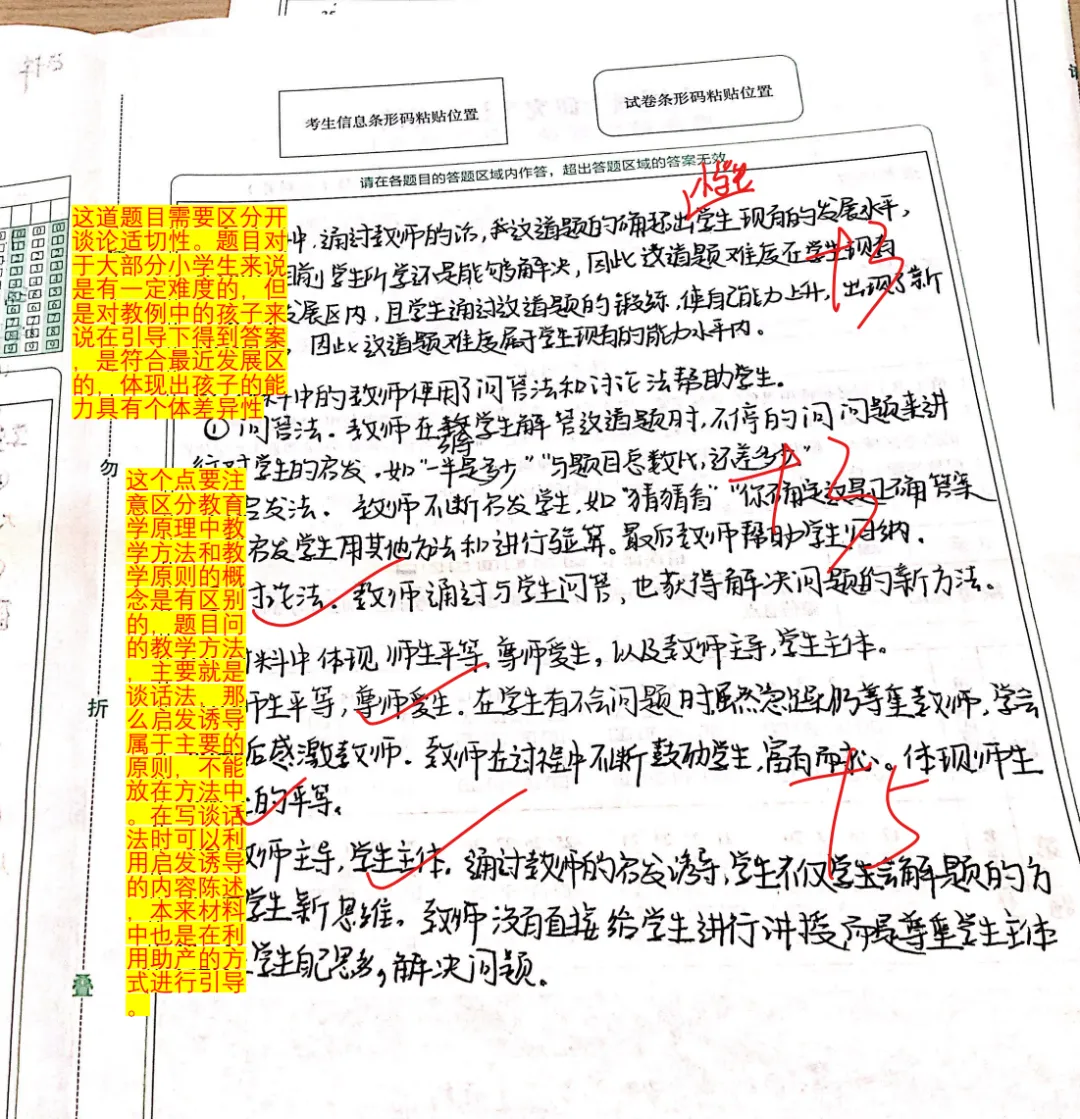 考生信息条形码粘贴位置
试卷条形码粘贴位置
请在各题目的答题区域内作答，超出答题区域的答案无效
小学生
中，通过教师的话，我这道题的确超出学生现有的发展水平，
+3
前学生所学还是能够解决，因此这道题难度在学生现有
发展区内，且学生通过这道题的锻练，使自己能力上升，出现了新
，因此这道题难度属于学生现有的能力水平内。
料中的教师使用了问答法和讨论法帮助学生。
①问答法。教师在教学生解答这道题时，不停的问问题来进
行对学生的启发。如“一半是多少”“与题目总数比，还差多少”
+3
启发法。教师不断启发学生，如“猜猜看”“你确定这是正确答案
启发学生用其他方法和进行验算。最后教师帮助学生归纳。
讨论法。教师通过与学生问答，也获得解决问题的新方法。
材料中体现师生平等，尊师爱生，以及教师主导，学生主体。
师生平等，尊师爱生。在学生有不会问题时虽然忿忿但仍尊重教师，学会
后感激教师。教师在过程中不断鼓励学生，富有耐心。体现师生
上的平等。
+5
教师主导，学生主体。通过教师的启发诱导，学生不仅学会解题的方
学生新思维。教师没有直接给学生进行讲授而是尊重学生主体
学生自己思考，解决问题。
这道题目需要区分开
谈论适切性。题目对
于大部分小学生来说
是有一定难度的，但
是对教例中的孩子来
说在引导下得到答案
，是符合最近发展区
的，体现出孩子的能
力具有个体差异性
这个点要注
意区分教育
学原理中教
学方法和教
学原则的概
念是有区别
的，题目问
的教学方法
，主要就是
谈话法，那
么启发诱导
属于主要的
原则，不能
放在方法中
。在写谈话
法时可以利
用启发诱导
的内容陈述
，本来材料
中也是在利
用助产的方
式进行引导
。
勿
折
叠